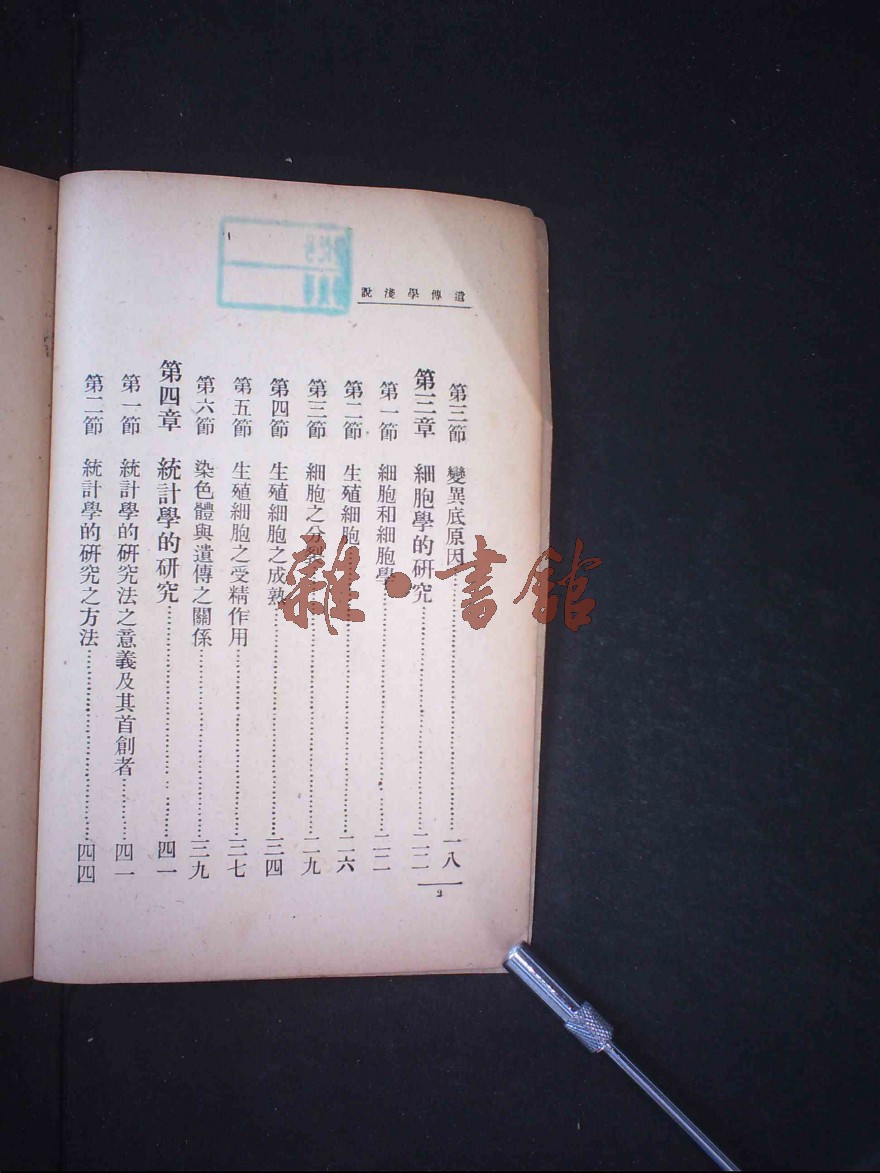 遺傳學淺說
第三節　變異底原因…………一八
第三章　細胞學的研究…………二二
第一節　細胞和細胞學…………二二
第二節　生殖細胞…………二六
第三節　細胞之分裂…………二九
第四節　生殖細胞之成熟…………三四
第五節　生殖細胞之受精作用…………三七
第六節　染色體與遺傳之關係…………三九
第四章　統計學的研究…………四一
第一節　統計學的研究法之意義及其首創者…………四一
第二節　統計學的研究之方法…………四四
2
雜·書館